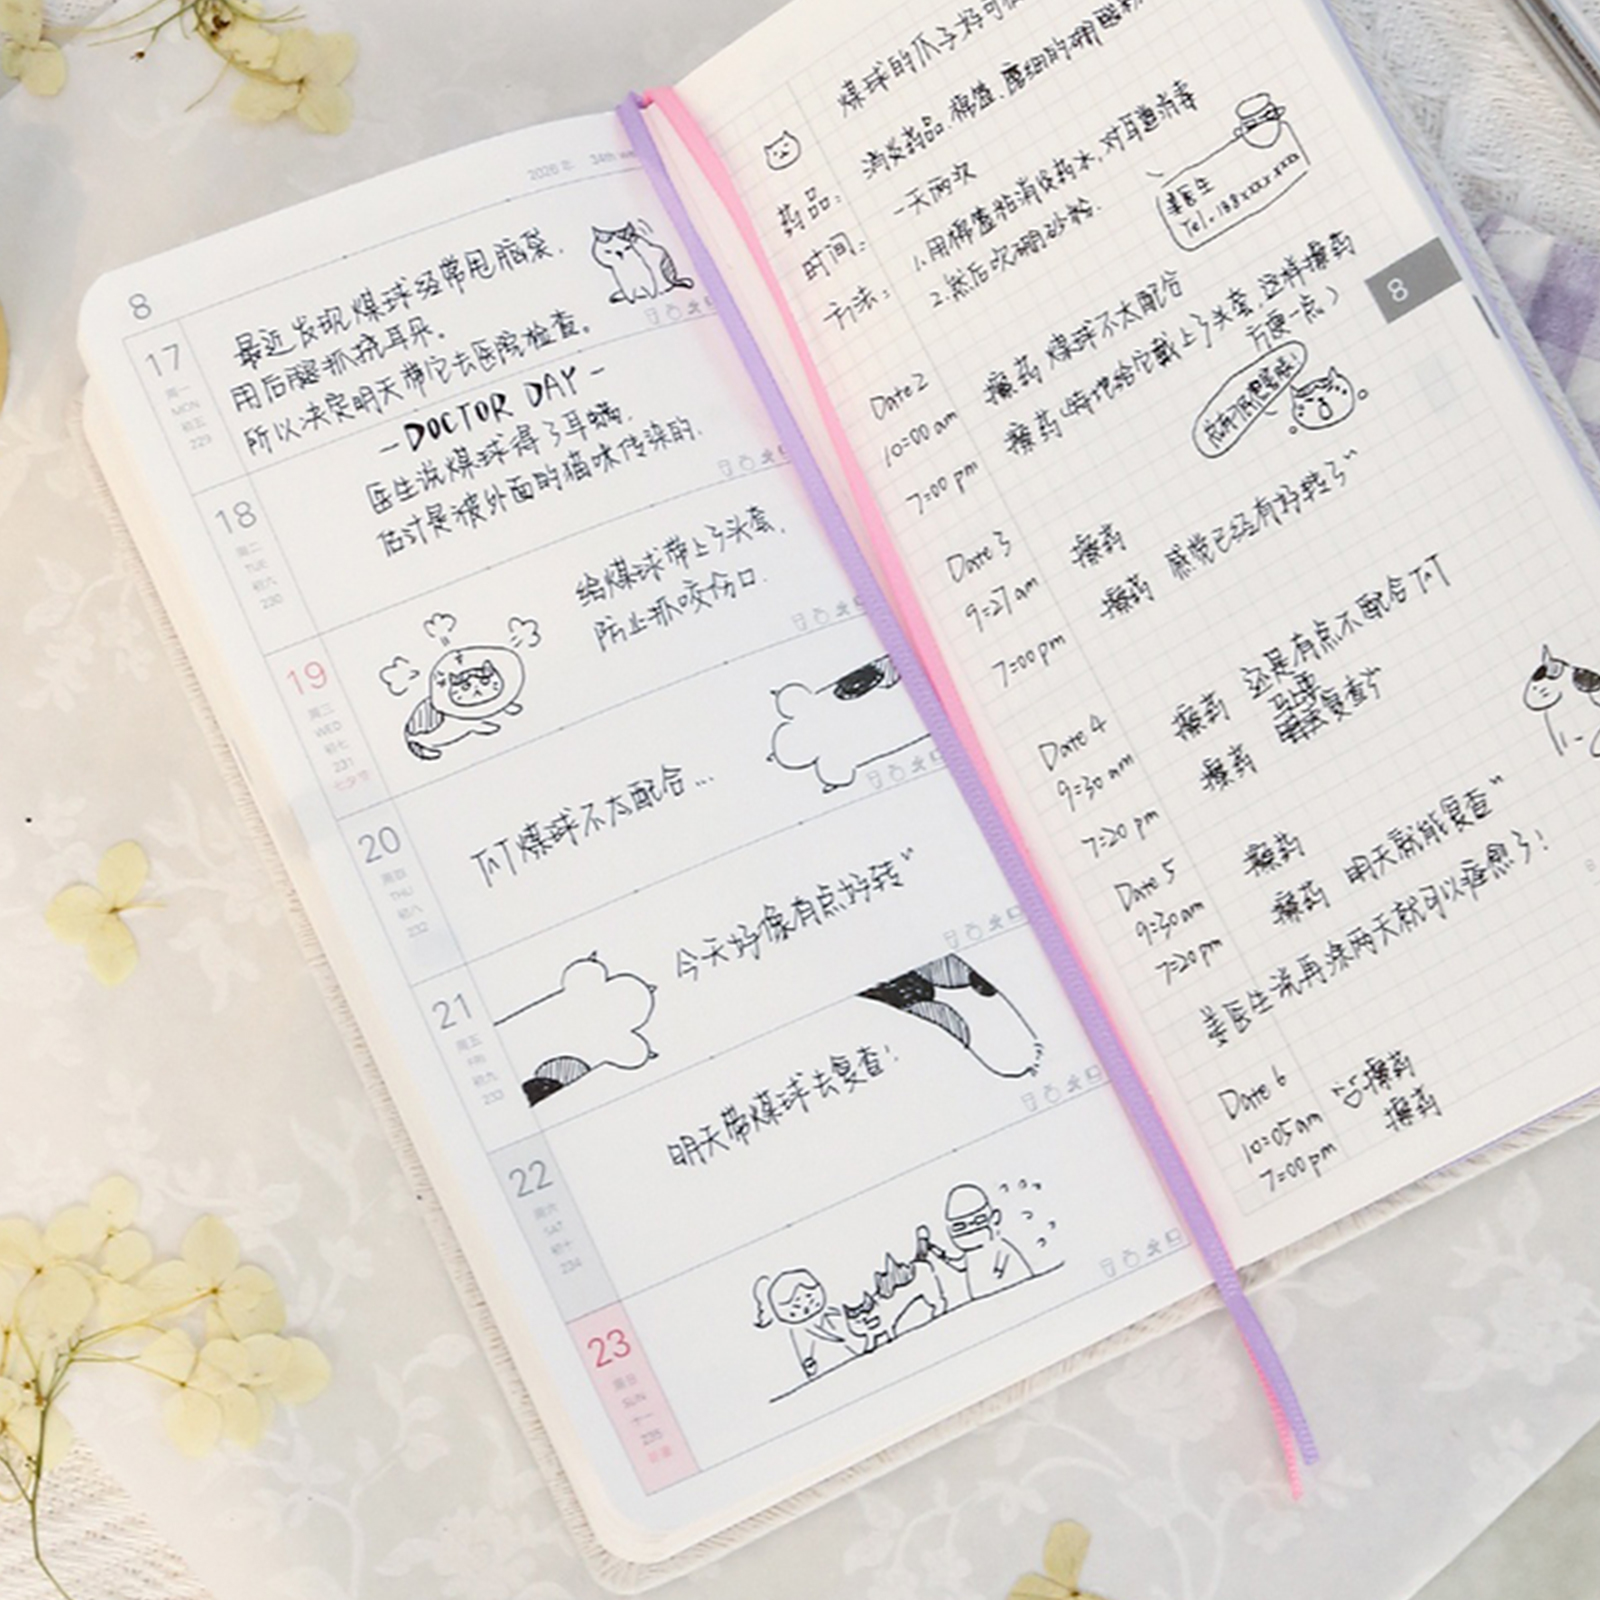 2026年 34th
8
17
周一
MON
初五
229
最近发现煤球经常甩脑袋.
用后腿抓挠耳朵。
所以决定明天带它去医院检查。
18
周二
TUE
初六
230
-DOCTOR DAY-
医生说煤球得了耳螨.
估计是被外面的猫咪传染的.
19
周三
WED
初七
231
七夕节
给煤球带上了头套.
防止抓咬伤口.
20
周四
THU
初八
232
TAT煤球不太配合...
21
周五
FRI
初九
233
今天好像有点好转~
22
周六
SAT
初十
234
明天带煤球去复查!
23
周日
SUN
十一
235
处暑
煤球的爪子好可
药品: 消炎药品.棉签.磨细的硼酸粉
时间: 一天两次
方法: 1.用棉签粘消炎药水,对耳道消毒
2.然后吹硼砂粉.
姜医生
Tel.188xxxxxxxx
8
Date 2
10:00 am 擦药 煤球不太配合
7:00 pm 擦药(特地给它戴上了头套,这样擦药
方便一点)
Date 3
9:27am 擦药
7:00pm 擦药 感觉已经有好转了~
Date 4
9:30 am 擦药 还是有点不配合TAT
7:20 pm 擦药 复查~
Date 5
9:30am 擦药
7:20pm 擦药 明天就能复查~
姜医生说再涂两天就可以痊愈了!
Date 6
10:05am 擦药
7:00pm 擦药